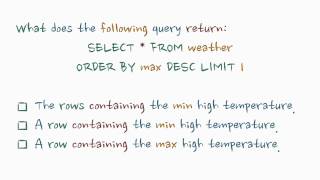 What does the following query return:
SELECT * FROM weather
ORDER BY max DESC LIMIT 1
The rows containing the min high temperature.
A row containing the min high temperature.
A row containing the max high temperature.